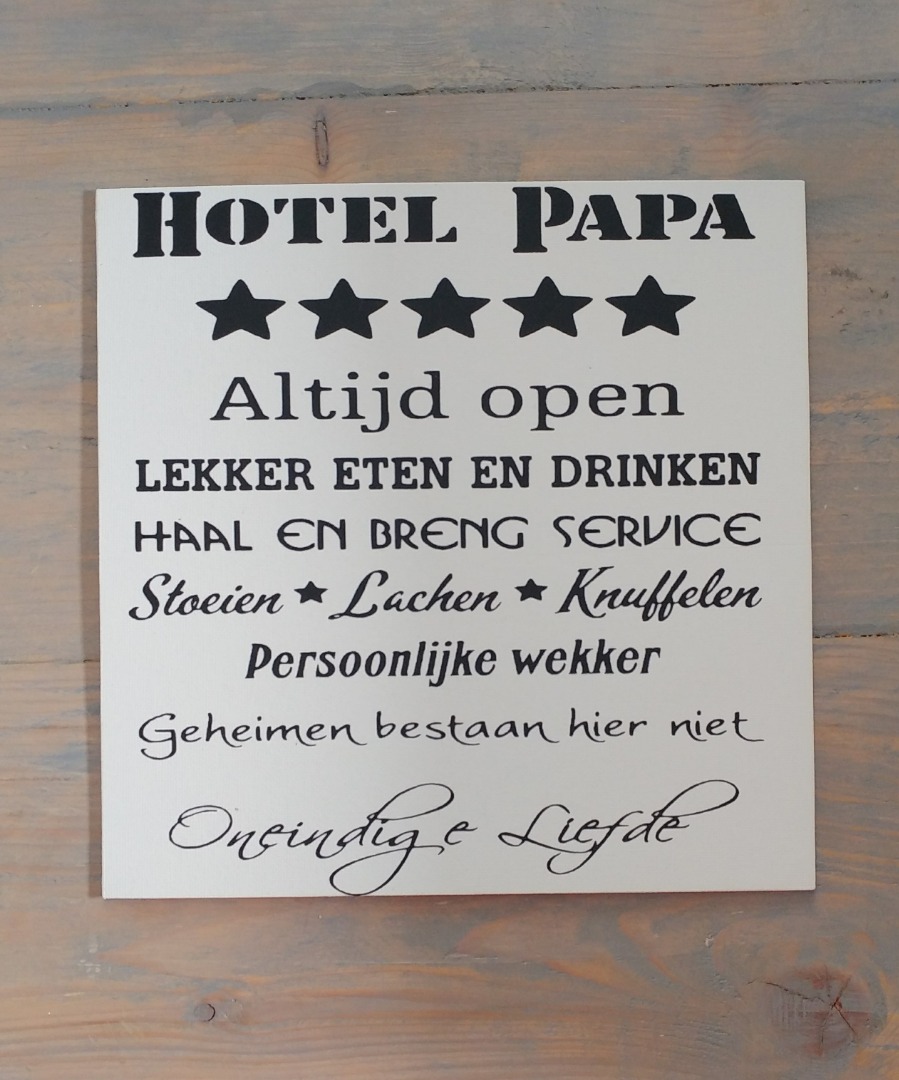 Hotel Papa
Altijd open
LEKKER ETEN EN DRINKEN
HAAL EN BRENG SERVICE
Stoeien ★ Lachen ★ Knuffelen
Persoonlijke wekker
Geheimen bestaan hier niet
Oneindige Liefde